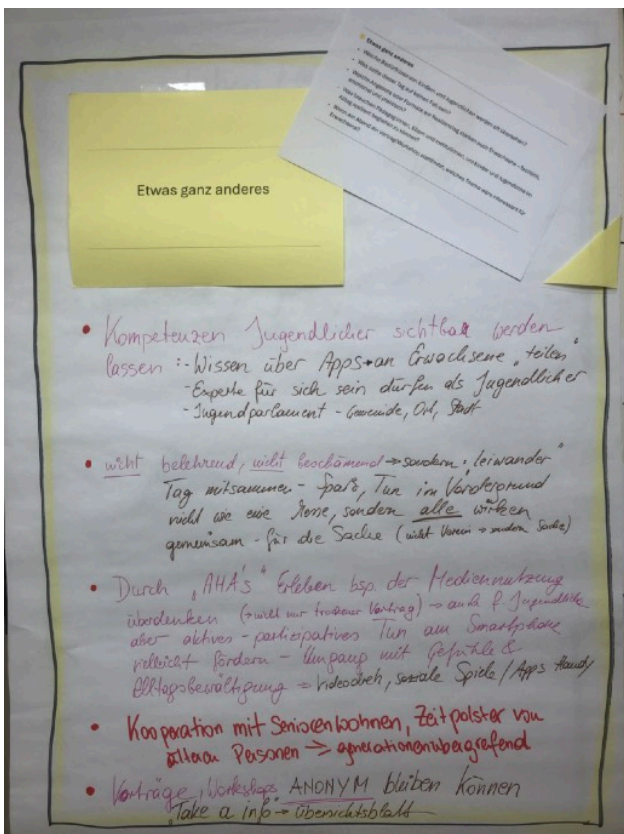 Etwas ganz anderes
Etwas ganz anderes
• Kompetenzen Jugendlicher sichtbar werden
lassen :- Wissen über Apps → an Erwachsene „teilen"
- Experte für sich sein dürfen als Jugendlicher
- Jugendparlament - Gemeinde, Ort, Stadt
• nicht belehrend, nicht beschämend → sondern „leiwander"
Tag mitsammen - Spaß, Tun im Vordergrund
nicht wie eine Messe, sondern alle wirken
gemeinsam - für die Sache (nicht Verein → sondern Sache)
• Durch „AHA's" Erleben bsp. der Mediennutzung
überdenken (→ nicht nur trockener Vortrag) → auch f. Jugendliche
aber aktives - participatives Tun am Smartphone
vielleicht fördern - Umgang mit Gefühle &
Alltagsbewältigung → Videodreh, soziale Spiele / Apps Handy
• Kooperation mit Seniorenwohnen, Zeitpolster von
älteren Personen → generationenübergreifend
• Vorträge, Workshops ANONYM bleiben können
„Take a info" → Übersichtsblatt